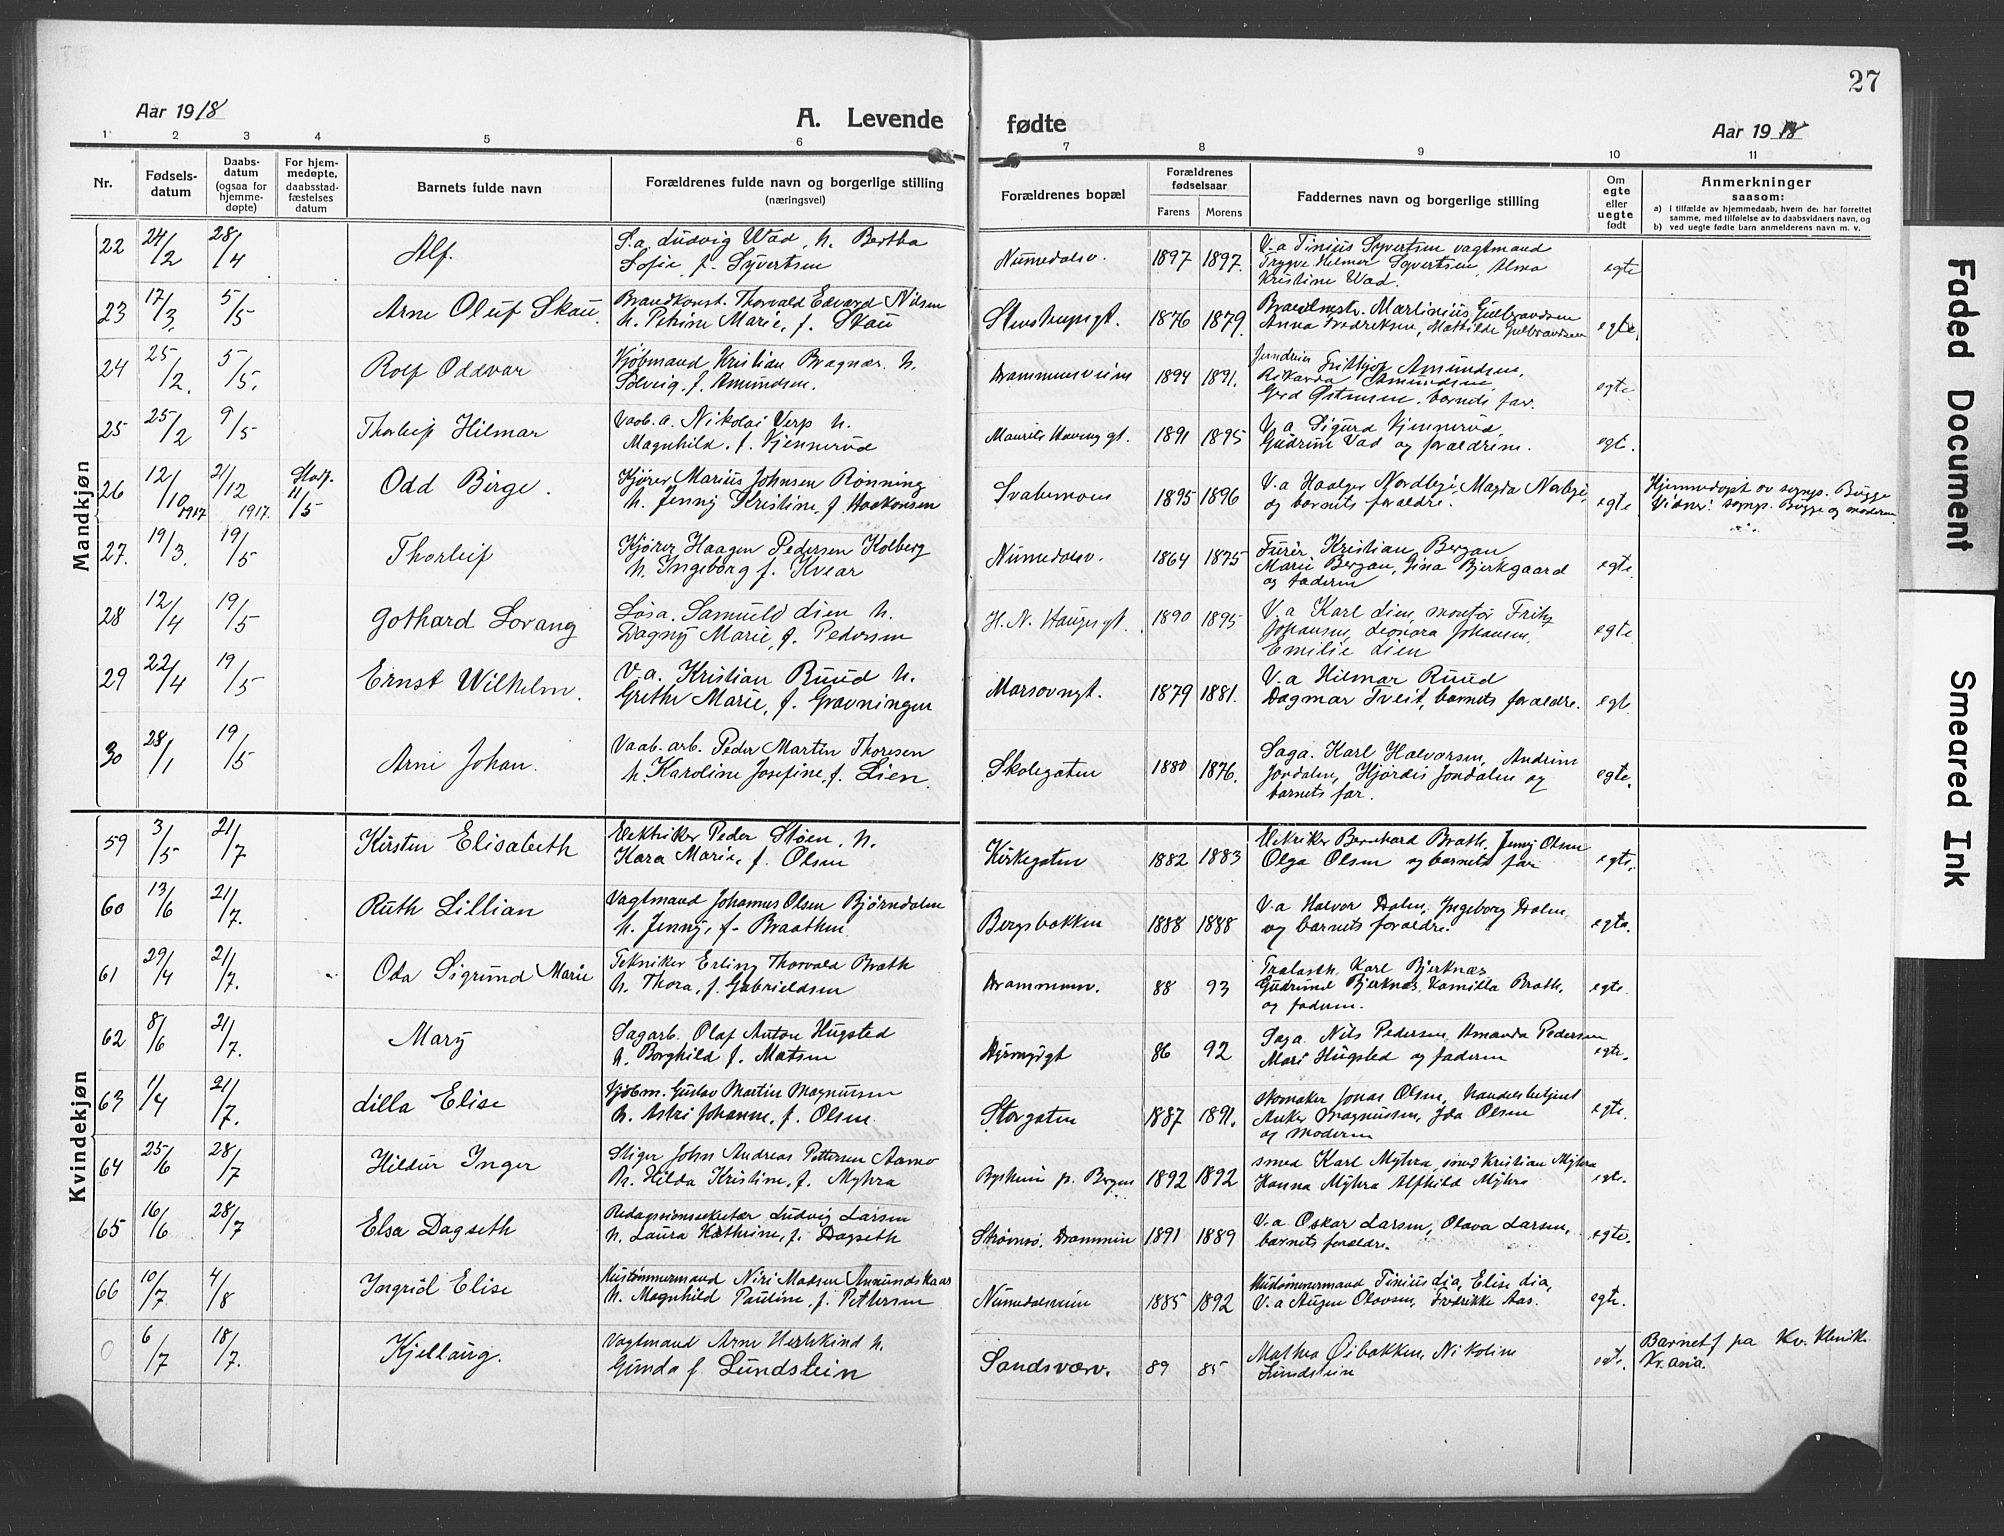 27
Aar 1918
A. Levende
fødte
Aar 1918
1 2 3 4 5 6 7 8 9 10 11
Nr.
Fødsels-
datum
Daabs-
datum
(ogsaa for
hjemme-
døpte)
For hjem-
medøpte,
daabsstad-
fæstelses
datum
Barnets fulde navn
Forældrenes fulde navn og borgerlige stilling
(næringsvei)
Forældrenes bopæl
Forældrenes
fødselsaar
Farens Morens
Faddernes navn og borgerlige stilling
Om
egte
eller
uegte
født
Anmerkninger
saasom:
a) i tilfælde av hjemmedaab, hvem der har forrettet
samme, med tilføielse av to daabsvidners navn, og
b) ved uegte fødte barn anmelderens navn m. v.
Mandkjøn
22 24/2 28/4 Alf. S.a. Ludvig Wad, h. Bertha
Sofie, f. Syvertsen
Numedalsv. 1897 1897. V.a Tinius Syvertsen vagtmand
Trygve Hilmer Syvertsen, Alma
Kristine Wad. egte
23 17/3. 5/5 Arne Oluf Skau. Brandkonst. Thorvald Edvard Nilsen
h. Petrine Marie, f. Skau
Stenstrupsgt. 1876 1879. Brandmestr. Martinius Gulbrandsen
Anna Fredriksen, Mathilde Gulbrandsen egte.
24 25/2. 5/5. Rolf Oddvar Kjøbmand Kristian Bragnær. h.
Solveig, f. Amundsen.
Drammensveien 1894 1891. Frithjof Amundsen,
Rikarda Amundsen,
Gerd Østensen, barnets far. egte
25 25/2 9/5 Thorleif Hilmar Vaab. a. Nikolai Verp h.
Magnhild, f. Kjennerud
Maurits Hansens gt. 1891 1895 V.a Sigurd Kjennerud,
Gudrun Vad og forældrene. egt.
26 12/10 1917 21/12 1917. Stadf. 11/5 Odd Birge. Kjører Marius Johnsen Rønning
h. Jenny Kristine, f. Haakonsen
Svabemoen 1895 1896 V.a Haakon Nordbye, Magda Norbye,
og barnets forældre. egte Hjemmedøpt av sognp. Bugge
Vidner: sognp. Bugge og moderen.
27. 19/3. 19/5 Thorleif Kjører Haagen Pedersen Kolberg
h. Ingeborg f. Kvear
Numedalsv. 1864 1875 Furér Kristian Bergan
Marie Bergan, Gina Bjerkgaard
og faderen egte.
28 12/4 19/5 Gothard Lovang Løsa. Samuel Lien h.
Dagny Marie, f. Pedersen
H. N. Hauges gt. 1890 1895 V.a Karl Lien, montør Fritz
Johansen, Leonora Johansen,
Emilie Lien egte
29 22/4 19/5 Ernst Wilhelm. V.a. Kristian Ruud h.
Grethe Marie, f. Gravningen
Marsovngt. 1879 1881. V.a Hilmar Ruud
Dagmar Tveit, barnets forældre. egt.
30 28/1 19/5 Arne Johan. Vaab. arb. Peder Martin Thoresen
h. Karoline Josefine, f. Lien.
Skolegaten 1880 1876. Saga. Karl Halvorsen, Andrine
Jondalen, Hjørdis Jondalen og
barnets far. egte.
Kvindekjøn
59 3/5 21/7 Kirsten Elisabeth Elektriker Peder Støen, h.
Kara Marie, f. Olsen
Kirkegaten 1882 1883 Elektriker Bernhard Brath, Jenny Olsen
Olga Olsen og barnets far egte.
60 13/6 21/7. Ruth Lillian Vagtmand Johannes Olsen Bjørndalen
h. Jenny, f. Braathen
Bergsbakken 1888 1888 V.a Halvor Dalen, Ingeborg Dalen
og barnets forældre. egte.
61 29/4 21/7. Oda Sigrund Marie Tekniker Erling Thorvald Brath
h. Thora, f. Gabrielsen
Drammensv. 88 93 Karl Bjerknæs
Gudrund Bjerknæs, Kamilla Brath,
og faderen. egte.
62 8/6 21/7. Mary Sagarb. Olaf Anton Hugsted
h. Borghild f. Matsen
Dyrmyrgt 86 92 Saga. Nils Pedersen, Amanda Pedersen
Mari Hugsted og faderen egte.
63 1/4 21/7. Lilla Elise Kjøbm. Gustav Martin Magnussen
h. Astri Johanne, f. Olsen
Storgaten 1887 1891. Skomaker Jonas Olsen, Handelsbetjent
Anker Magnussen, Ida Olsen
og moderen egte.
64 25/6 28/7 Hildur Inger Stiger John Andreas Pettersen Aamo
h. Hilda Kristine, f. Myhra
1892 1892 smed Karl Myhra, smed Kristian Myhra
Hanna Myhra Alfhild Myhra egte.
65 16/6 28/7 Elsa Dagseth Redaksionssekretær Ludvig Larsen
h. Laura Kathrine, f. Dagseth
Strømsø, Drammen 1891 1889 V.a Oskar Larsen, Olava Larsen,
barnets forældre. egte.
66 10/7 4/8 Ingrid Elise Hustømmermand Niri Madsen Amundskaas
h. Magnhild Pauline, f. Pettersen
Numedalsveien 1885 1892 Hustømmermand Tinius Lia, Elise Lia,
V.a Augen Olavsen, Fredrikke Aas. egte.
0 6/7 18/7. Kjellaug. Vagtmand Arne Herbkind h.
Gunda f. Lundstein
Sandsværv. 89 85 Mathea Øibakken, Nikoline
Lundstein egte. Barnet f. pa Kv. klinik.
Kr.ania.
Faded Document
Smeared Ink